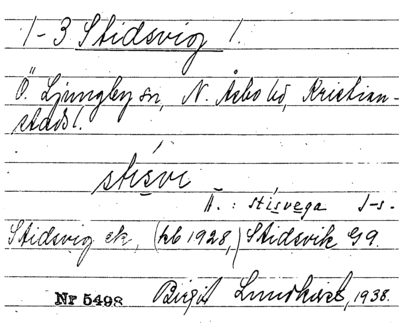 1-3 Stidsvig 1.
Ö. Ljungby sn, N. Åsbo hd, Kristian-
stads l.
stisvi
Ä.: stisvega J-s.
Stidsvig ek, (kb 1928,) Stidsvik G9.
Nr 5498 Birgit Lundkvist, 1938.